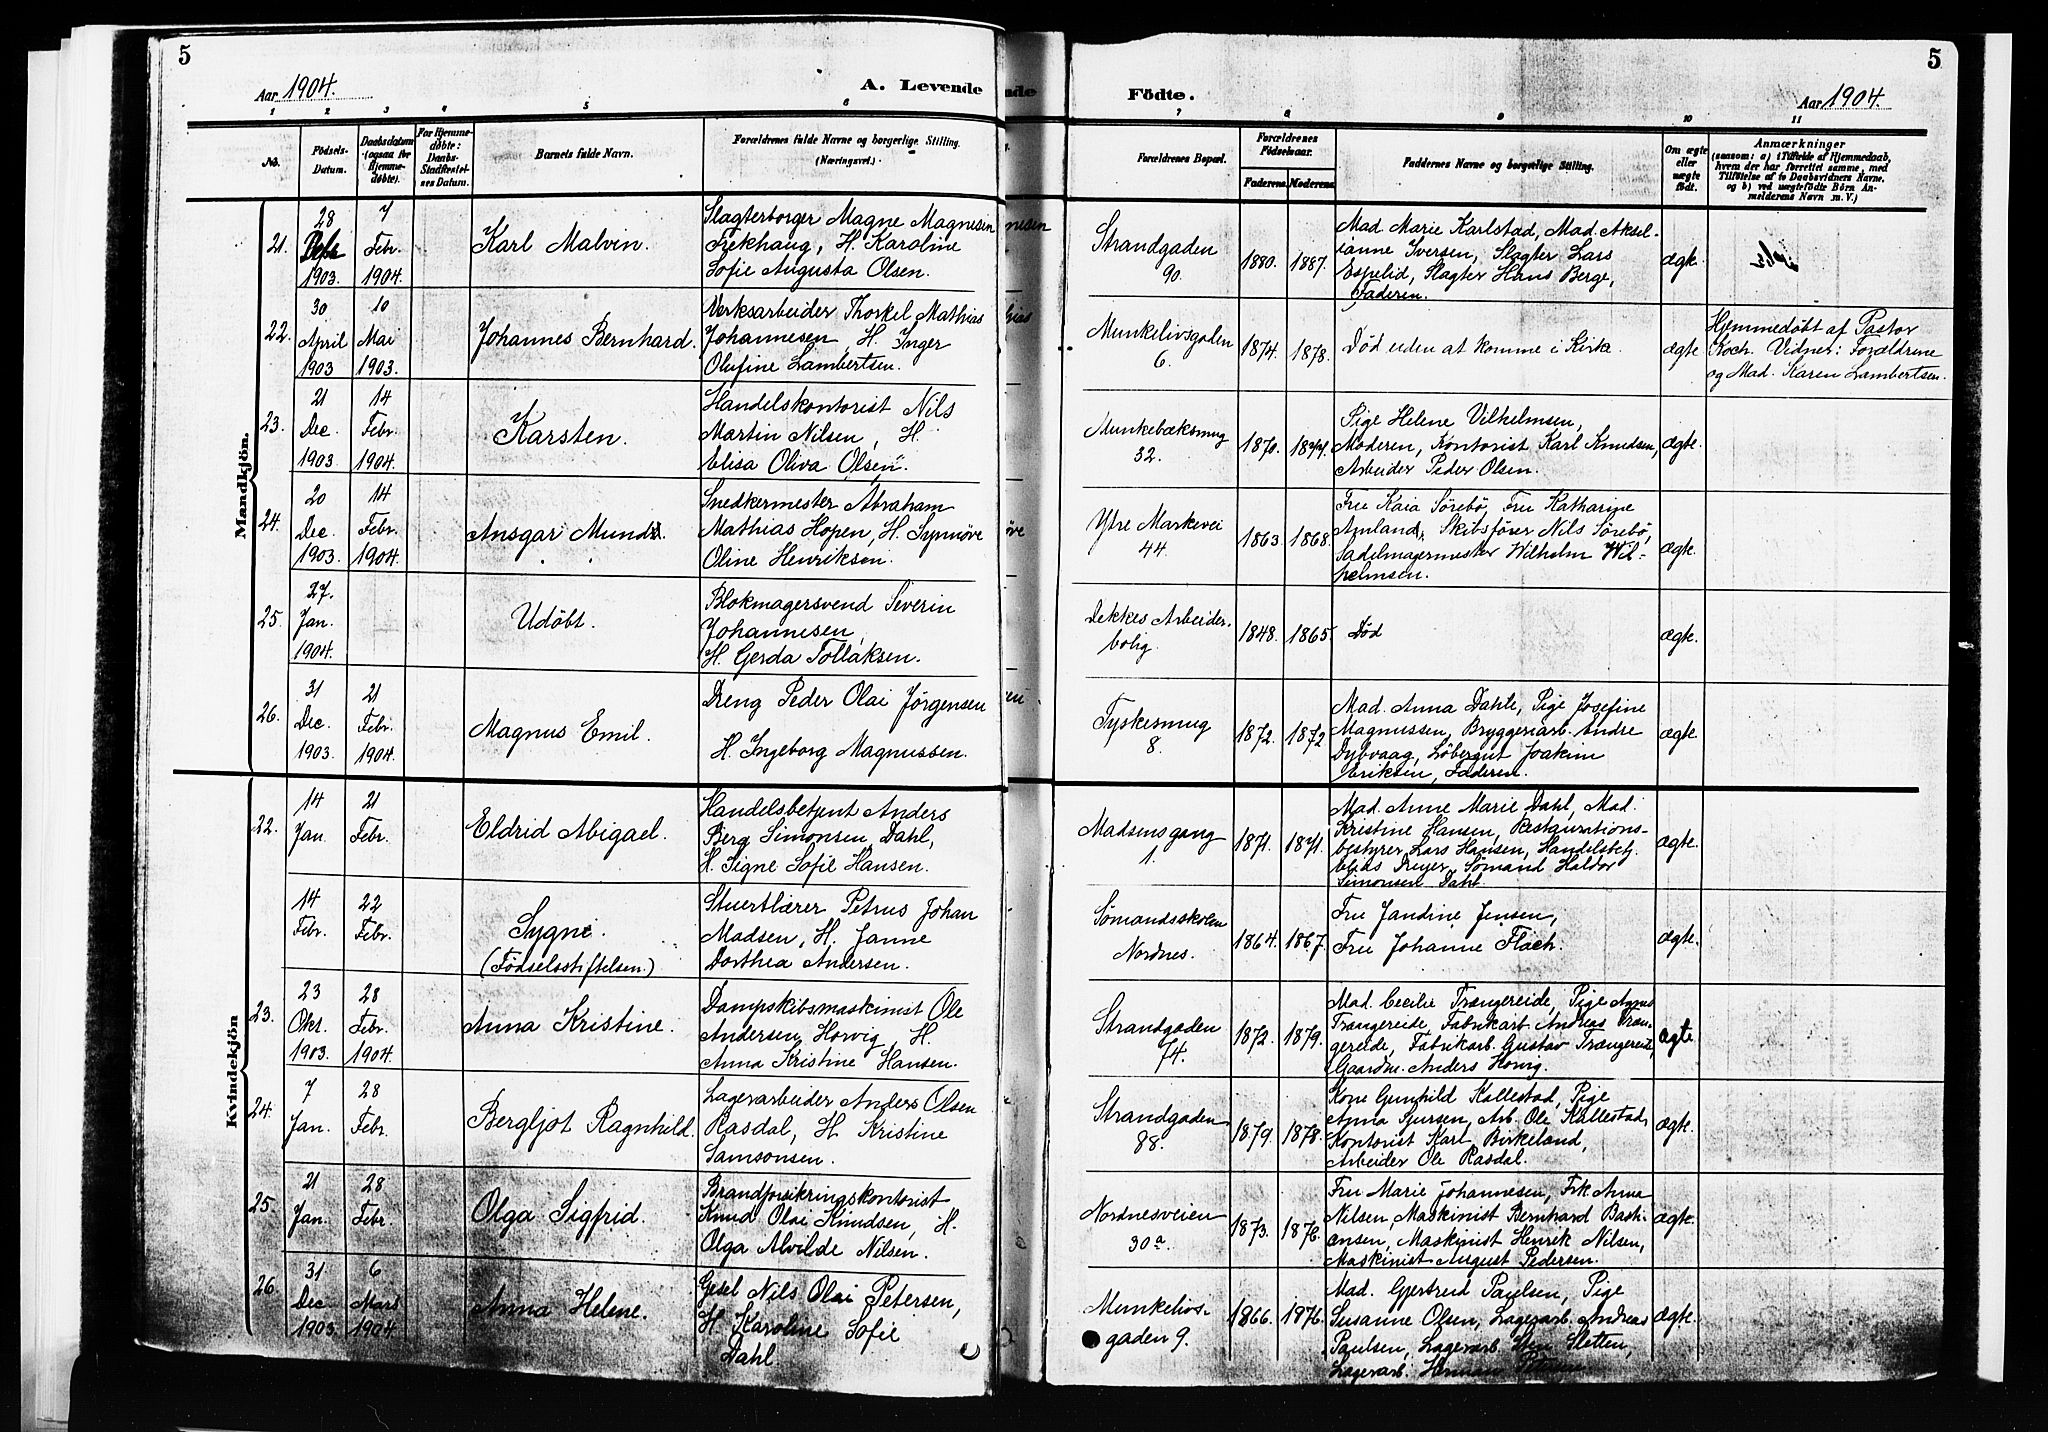 5
Aar 1904.
A. Levende
Födte.
Aar 1904.
5
1 2 3 4 5 6 7 8 9 10 11
No.
Födsels-
Datum.
Daabsdatum
(ogsaa for
Hjemme-
døbte).
For Hjemme-
døbte:
Daabs-
Stadfæstel-
ses Datum.
Barnets fulde Navn.
Forældrenes fulde Navne og borgerlige Stilling.
(Næringsvei.)
Forældrenes Bopæl.
Forældrenes
Födselsaar.
Faderens. Moderens.
Faddernes Navne og borgerlige Stilling.
Om ægte
eller
uægte
født.
Anmærkninger
(saasom: a) i Tilfælde af Hjemmedaab,
hvem der har forrettet samme, med
Tilføielse af to Daabsvidners Navne,
og b) ved uægtefødte Børn An-
melderens Navn m. V.)
Mandkjön.
21.
28
1903.
7
Febr.
1904.
Karl Malvin.
Slagterborger Magne Magnesen
Frekhaug, H. Karoline
Sofie Augusta Olsen.
Strandgaden
90.
1880. 1887.
Mad. Marie Karlstad, Mad. Aksel-
ianne Iversen, Slagter Lars
Espelid, Slagter Hans Berge,
Faderen.
ægte
22.
30
April
1903
10
Mai
1903.
Johannes Bernhard.
Verksarbeider Thorkel Mathias
Johannesen, H. Inger
Olufine Lambertsen.
Munkelivsgaden
6.
1874. 1878.
Død uden at komme i Kirke.
ægte
Hjemmedøbt af Pastor
Koch. Vidner: Forældrene
og Mad. Karen Lambertsen.
23.
21
Dec.
1903
14
Febr.
1904.
Karsten.
Handelskontorist Nils
Martin Nilsen, H.
Elisa Oliva Olsen.
Munkebæksmug
32.
1870.
Pige Helene Vilhelmsen,
Moderen, Kontorist Karl Knudsen,
Arbeider Peder Olsen.
ægte.
24.
20
Dec.
1903.
14
Febr.
1904.
Ansgar
Snedkermester Abraham
Mathias Hopen, H. Synnöve
Oline Henriksen.
Ytre Markevei
44.
1863. 1868.
Fru Kaia Sörebö, Fru Katharine
Amland, Skibsfører Nils Sörebö,
Sadelmagermester Wilhelm Wil-
helmsen.
ægte.
25.
27.
Jan.
1904.
Udöbt.
Blokmagersvend Severin
Johannesen,
H. Gerda Tollaksen.
Dekkes Arbeider-
bolig.
1848. 1865.
Död
ægte.
26.
31
Dec.
1903.
21
Febr.
1904.
Magnus Emil.
Dreng Peder Olai Jörgensen
H. Ingeborg Magnussen.
Tyskesmug
8.
1872. 1872
Mad. Anna Dahle, Pige Josefine
Magnussen, Bryggeriarb. Andre
Dybvaag, Löbergut Joakim
Eriksen, Faderen.
ægte
Kvindekjön
22.
14
Jan.
21
Febr.
Eldrid Abigael.
Handelsbetjent Anders
Berg Simonsen Dahl,
H. Signe Sofie Hansen.
Madsensgang
1.
1871. 1871.
Mad. Anne Marie Dahl, Mad.
Kristine Hansen, Restaurations-
bestyrer Lars Hansen, Handelsbetj.
Elias Dreyer, Sømand Haldor
Simonsen Dahl.
ægte.
14
Febr.
22
Febr.
Sygni.
(Födselsstiftelsen.)
Stuertlærer Petrus Johan
Madsen, H. Janne
Dorthea Andersen.
Sömandsskolen
Nordnes.
1864. 1867.
Fru Jandine Jensen,
Fru Johanne Flach.
ægte.
23.
23
Okt.
1903.
28
Febr.
1904.
Anna Kristine.
Dampskibsmaskinist Ole
Andersen Horvig, H.
Anna Kristine Hansen.
Strandgaden
74.
1872. 1879.
Mad. Cecilie Trængereide, Pige Agnes
Trængereide, Fabrikarb. Andreas Træn-
gereide, Fabrikarb. Gustav Trængereide,
Gaardm. Anders Horvig.
ægte
24.
7
Jan.
28
Febr.
Bergljot Ragnhild.
Lagerarbeider Anders Olsen
Rasdal, H. Kristine
Samsonsen.
Strandgaden
88.
1879. 1878.
Kone Gunhild Kallestad, Pige
Anna Sjursen, Arb. Ole Kallestad,
Kontorist Karl Birkeland,
Arbeider Ole Rasdal.
ægte.
25.
21
Jan.
28
Febr.
Olga Sigfrid.
Brandforsikringskontorist
Knud Olai Knudsen, H.
Olga Alvilde Nilsen.
Nordnesveien
30a.
1873. 1876.
Fru Marie Johannesen, Frk. Anna
Nilsen, Maskinist Bernhard Basti-
ansen, Maskinist Henrik Nilsen,
Maskinist August Pedersen.
ægte.
26.
31
Dec.
1903.
6
Mars
1904
Anna Helene.
Gesel Nils Olai Petersen,
H. Karoline Sofie
Dahl
Munkelivs-
gaden 9.
1866. 1876.
Mad. Gjertrud Paulsen, Pige
Susanne Olsen, Lagerarb. Andreas
Paulsen, Lagerarb. Sletten,
Lagerarb. Herman
ægte.